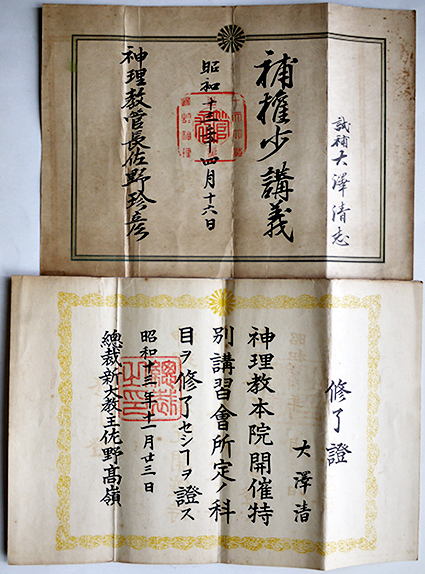 試補大澤清志
補權少講義
昭和十三年四月十六日
神理教管長佐野珍彦
修了證
大澤清
神理教本院開催特
別講習會所定ノ科
目ヲ修了セシヿヲ證ス
昭和十三年十一月廿三日
總裁新大教主佐野高嶺